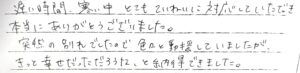 遅い時間、寒い中、とてもていねいに対応していただき
本当にありがとうございました。
突然の別れでしたので色々と動揺していましたが、
きっと幸せだっただろうな、と納得できました。